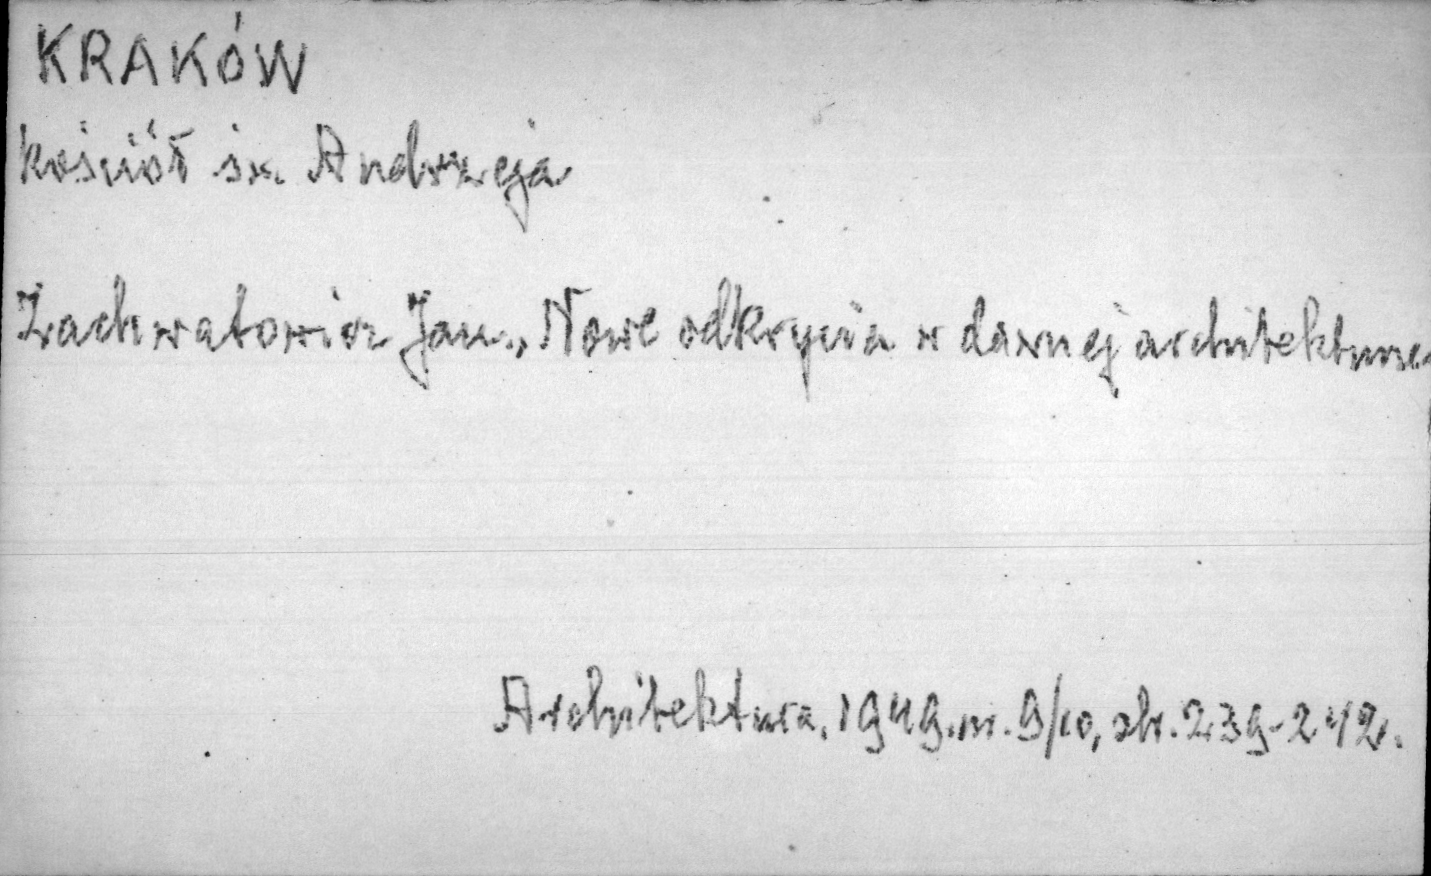 KRAKÓW
kościół św. Andrzeja
Zachwatowicz Jan., Nowe odkrycia w dawnej architekturze
Architektura, 1949. nr. 9/10, str. 239-242.